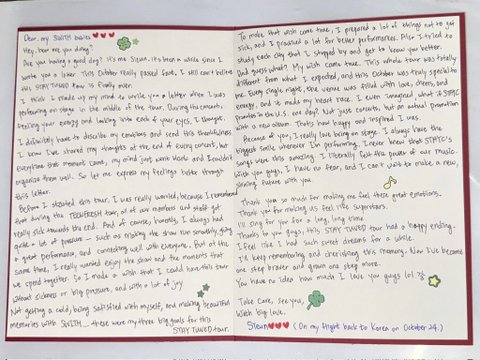 Dear. my SWITH babies
Hey, how are you doing?
Are you having a good day? It's me Sieun. It's been a while since I
wrote you a letter. This October really passed fast, I still can't believe
this STAY TUNED tour is finally over.
I think I made up my mind to write you a letter when I was
performing on stage in the middle of the tour. During the concert,
feeling your energy and looking into each of your eyes, I thought,
I definitely have to describe my emotions and send this thankfulness.
I know I've shared my thoughts at the end of every concert, but
everytime that moment came, my mind just went blank and I couldn't
organize them well. So let me express my feelings better through
this letter.
Before I started this tour, I was really worried, because I remembered
that during the TEENFRESH tour, all of our members and staff got
really sick towards the end. And of course, honestly, I always had
quite a lot of pressure - such as making the show run smoothly, giving
a great performance, and connecting well with everyone. But at the
same time, I really wanted enjoy the show and the moments that
we spend together. So I made a wish that I could have this tour
without sickness or big pressure, and with a lot of joy.
Not getting a cold, being satisfied with myself, and making beautiful
memories with SWITH... these were my three big goals for this
STAY TUNED tour.
To make that wish come true, I prepared a lot of things not to get
sick, and I practiced a lot for better performances. Also I tried to
study each city that I stopped by and get to know you better.
And guess what? My wish came true. This whole tour was totally
different from what I expected, and this October was truly special to
me. Every single night, the venue was filled with love, cheers, and
energy, and it made my heart race. I even imagined what if STAYC
promotes in the U.S. one day? Not just concerts, but an actual promotion
with a new album. That's how happy and inspired I was.
Because of you, I really love being on stage. I always have the
biggest smile whenever I'm performing. I never knew that STAYC's
songs were this amazing. I literally felt the power of our music.
With you guys, I have no fear, and I can't wait to make a new,
shining future with you.
Thank you so much for making me feel these great emotions.
Thank you for making us feel like superstars.
I'll sing for you for a long, long time.
Thanks to you guys, this STAY TUNED tour had a happy ending.
I feel like I had such sweet dreams for a while.
I'll keep remembering and cherishing this memory. Now I've become
one step braver and grown one step more.
You have no idea how much I love you guys lol
Take Care, see you,
With big love.
Sieun (On my flight back to Korea on October 24.)